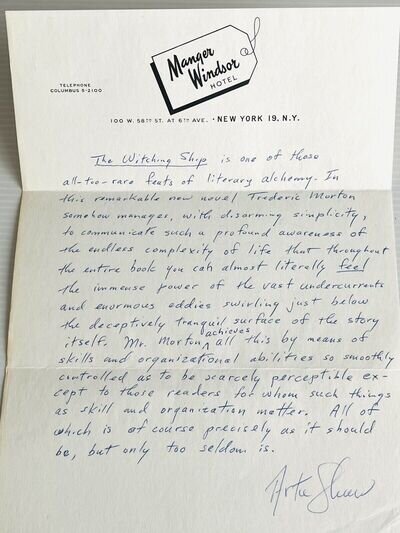 Manger
Windsor
HOTEL
TELEPHONE
COLUMBUS 5-2100
100 W. 58TH ST. AT 6TH AVE. • NEW YORK 19, N.Y.
The Witching Ship is one of those
all-too-rare feats of literary alchemy. In
this remarkable new novel Frederic Morton
somehow manages, with disarming simplicity,
to communicate such a profound awareness of
the endless complexity of life that throughout
the entire book you can almost literally feel
the immense power of the vast undercurrents
and enormous eddies swirling just below
the deceptively tranquil surface of the story
itself. Mr. Morton achieves all this by means of
skills and organizational abilities so smoothly
controlled as to be scarcely perceptible ex-
cept to those readers for whom such things
as skill and organization matter. All of
which is of course precisely as it should
be, but only too seldom is.
Artie Shaw